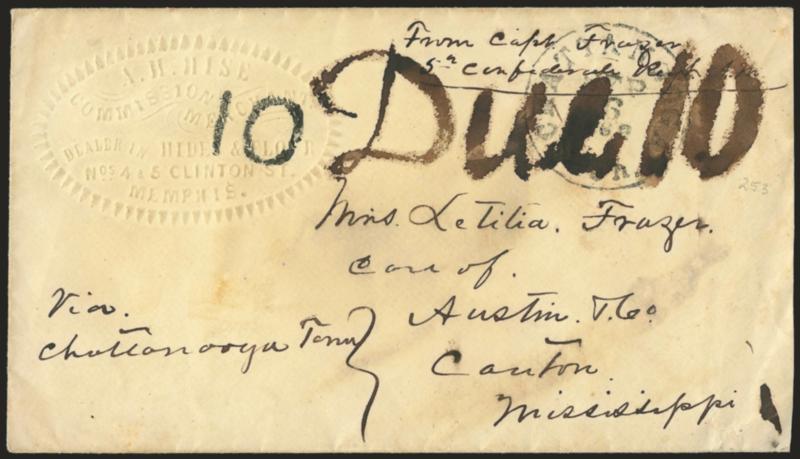 From Capt. Frazer
5th Confederate Regt.
A. H. HISE
COMMISSION
MERCHANT
DEALER IN HIDES & FLOUR
NOS 4 & 5 CLINTON ST.
MEMPHIS.
10
Due 10
253
Mrs. Letitia. Frazer.
Care of.
Austin. T. Co.
Canton
Mississippi
Via.
Chattanooga Tenn